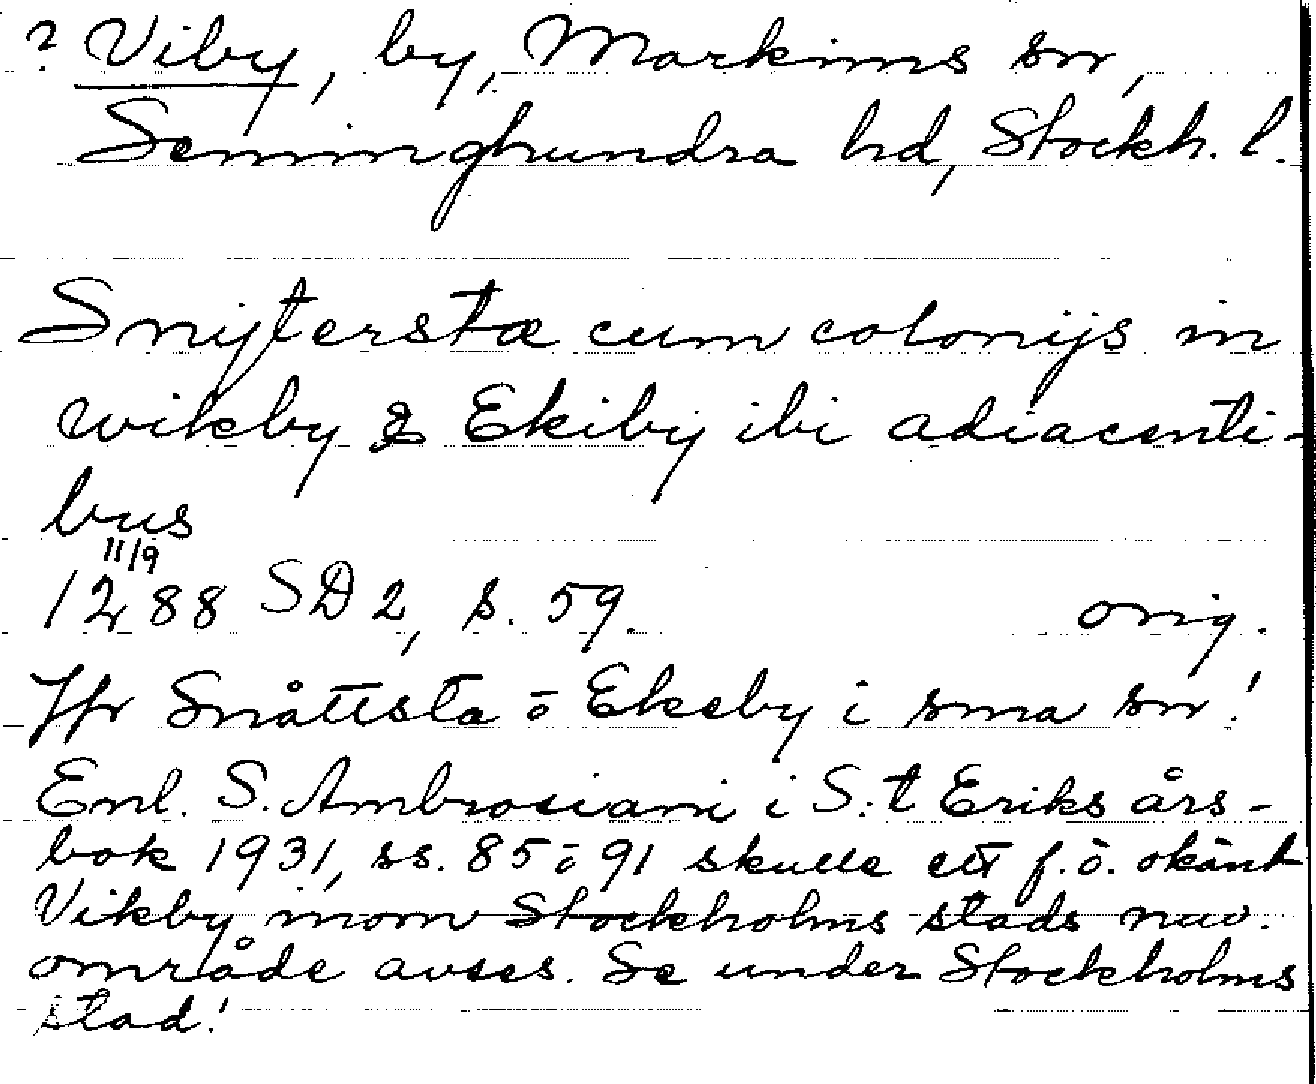 ? Viby, by, Markims sn,
Seminghundra hd, Stockh. l.
Snijterstæ cum colonijs in
wikby & Ekiby ibi adiacenti-
bus
11/9
1288 SD 2, s. 59. orig.
Jfr Snåttsta o Ekeby i sma sn!
Enl. S. Ambrosiani i S:t Eriks års-
bok 1931, ss. 85 o 91 skulle ett f.ö. okänt
Vikby inom Stockholms stads nuv.
område avses. Se under Stockholms
stad!